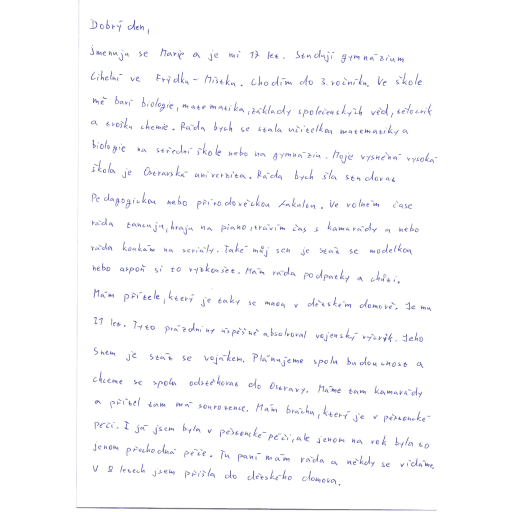 Dobrý den,
jmenuju se Marie a je mi 17 let. Studuji gymnázium
Cihelní ve Frýdku-Místku. Chodím do 3. ročníku. Ve škole
mě baví biologie, matematika, základy společenských věd, tělocvik
a trošku chemie. Ráda bych se stala učitelkou matematiky a
biologie na střední škole nebo na gymnáziu. Moje vysněná vysoká
škola je Ostravská univerzita. Ráda bych šla studovat
Pedagogickou nebo přírodověckou fakultu. Ve volném čase
ráda tancuju, hraju na piano, trávím čas s kamarády a nebo
ráda koukám na seriály. Také můj sen je stát se modelkou
nebo aspoň si to vyzkoušet. Mám ráda podpatky a chůzi.
Mám přítele, který je taky se mnou v dětském domově. Je mu
19 let. Tyto prázdniny úspěšně absolvoval vojenský výcvik. Jeho
snem je stát se vojákem. Plánujeme spolu budoucnost a
chceme se spolu odstěhovat do Ostravy. Máme tam kamarády
a přítel tam má sourozence. Mám bráchu, který je v pěstounské
péči. I já jsem byla v pěstounské péči, ale jenom na rok byla to
jenom přechodná péče. Tu paní mám ráda a někdy se vídáme.
V 8 letech jsem přišla do dětského domova.